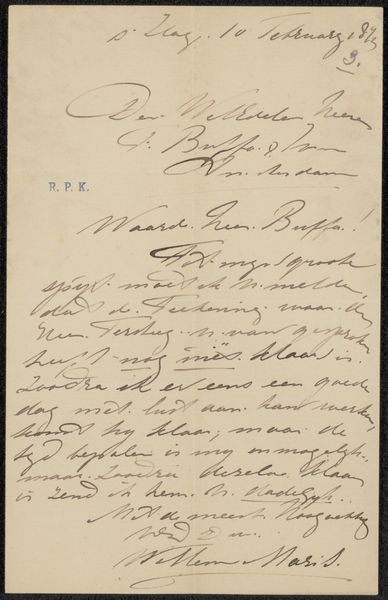 s' Hag. 10 February 18
3.
Den WelEdelen Heeren
F. Buffa & Zonen
Amsterdam
R. P. K.
Waarde Heer Buffa!
Tot mijn groote
spijt moet ik U melden,
dat de Teekening waar de
Heer Tersteeg U van gesproken
heeft nog niet klaar is.
Zoodra ik er eens een goede
dag met lust aan kan werken,
komt hij klaar, maar de
tijd bepalen is mij onmogelijk.
maar zoodra dezelve klaar
is zend ik hem U dadelijk.
Met de meeste Hoogachting
Willem Maris.